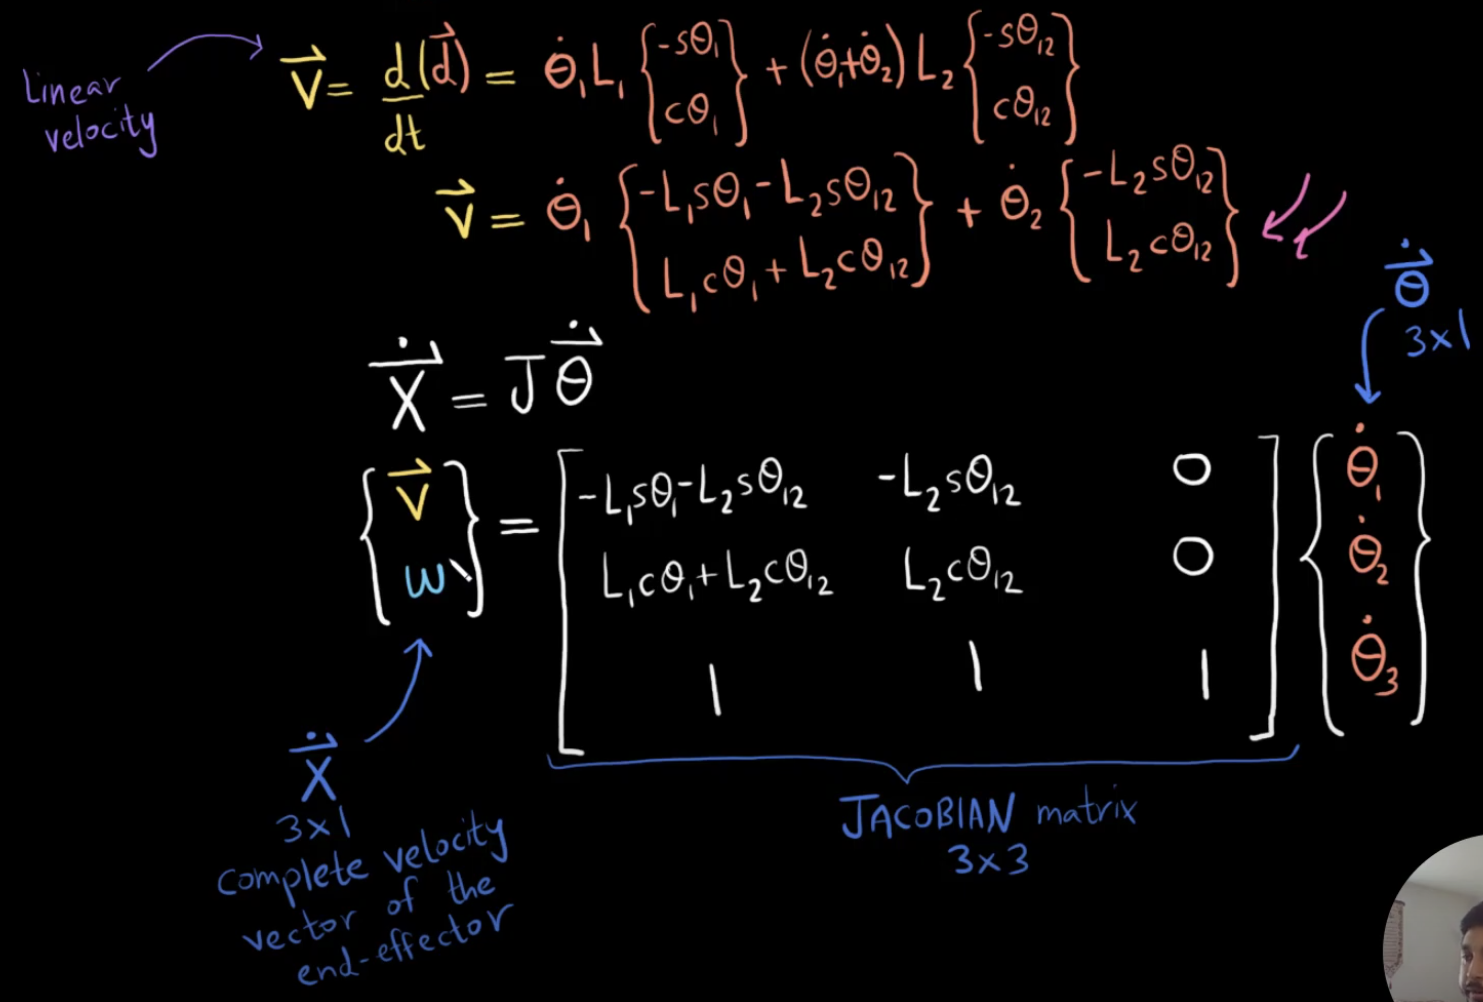 Linear velocity
V⃗ = d/dt (d⃗) = θ̇₁L₁ {-sθ₁ cθ₁} + (θ̇₁+θ̇₂) L₂ {-sθ₁₂ cθ₁₂}
V⃗ = θ̇₁ {-L₁sθ₁-L₂sθ₁₂ L₁cθ₁+L₂cθ₁₂} + θ̇₂ {-L₂sθ₁₂ L₂cθ₁₂}
θ⃗̇
3x1
X⃗̇ = Jθ⃗̇
{V⃗ ω} = [-L₁sθ₁-L₂sθ₁₂ -L₂sθ₁₂ 0
L₁cθ₁+L₂cθ₁₂ L₂cθ₁₂ 0
1 1 1] {θ̇₁ θ̇₂ θ̇₃}
X⃗̇
3x1
complete velocity
vector of the
end-effector
JACOBIAN matrix
3x3